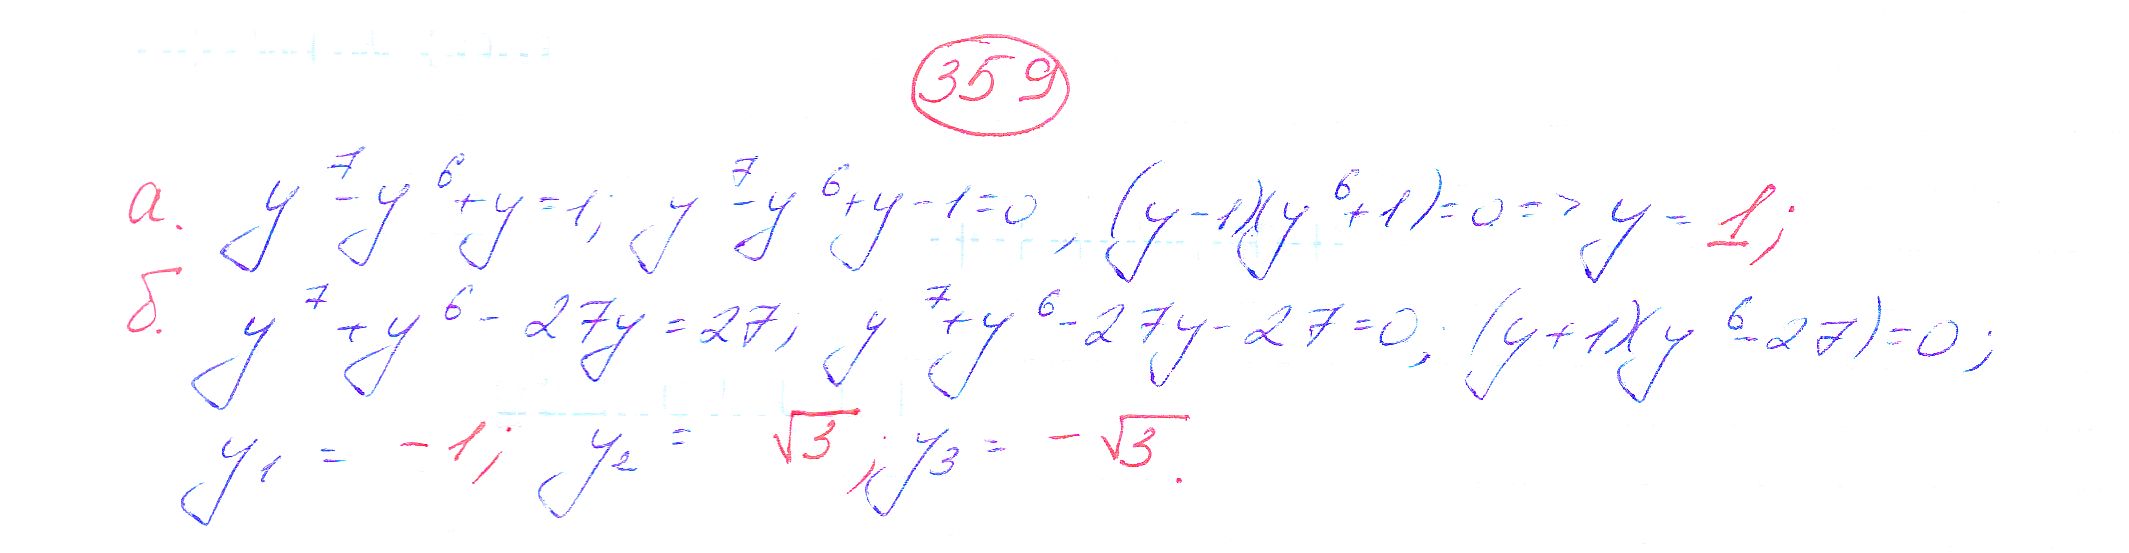 359
а. y⁷-y⁶+y=1; y⁷-y⁶+y-1=0, (y-1)(y⁶+1)=0=> y=1;
б. y⁷+y⁶-27y=27; y⁷+y⁶-27y-27=0; (y+1)(y⁶-27)=0;
y₁=-1; y₂=√3; y₃=-√3.